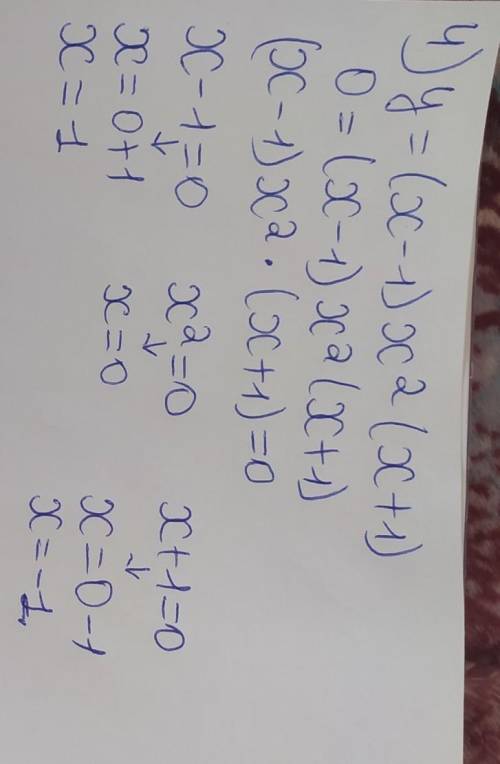 4) y = (x-1) x² (x+1)
0 = (x-1) x² (x+1)
(x-1) x² · (x+1) = 0
x-1=0 x²=0 x+1=0
↓ ↓ ↓
x=0+1 x=0 x=0-1
x=1 x=-1